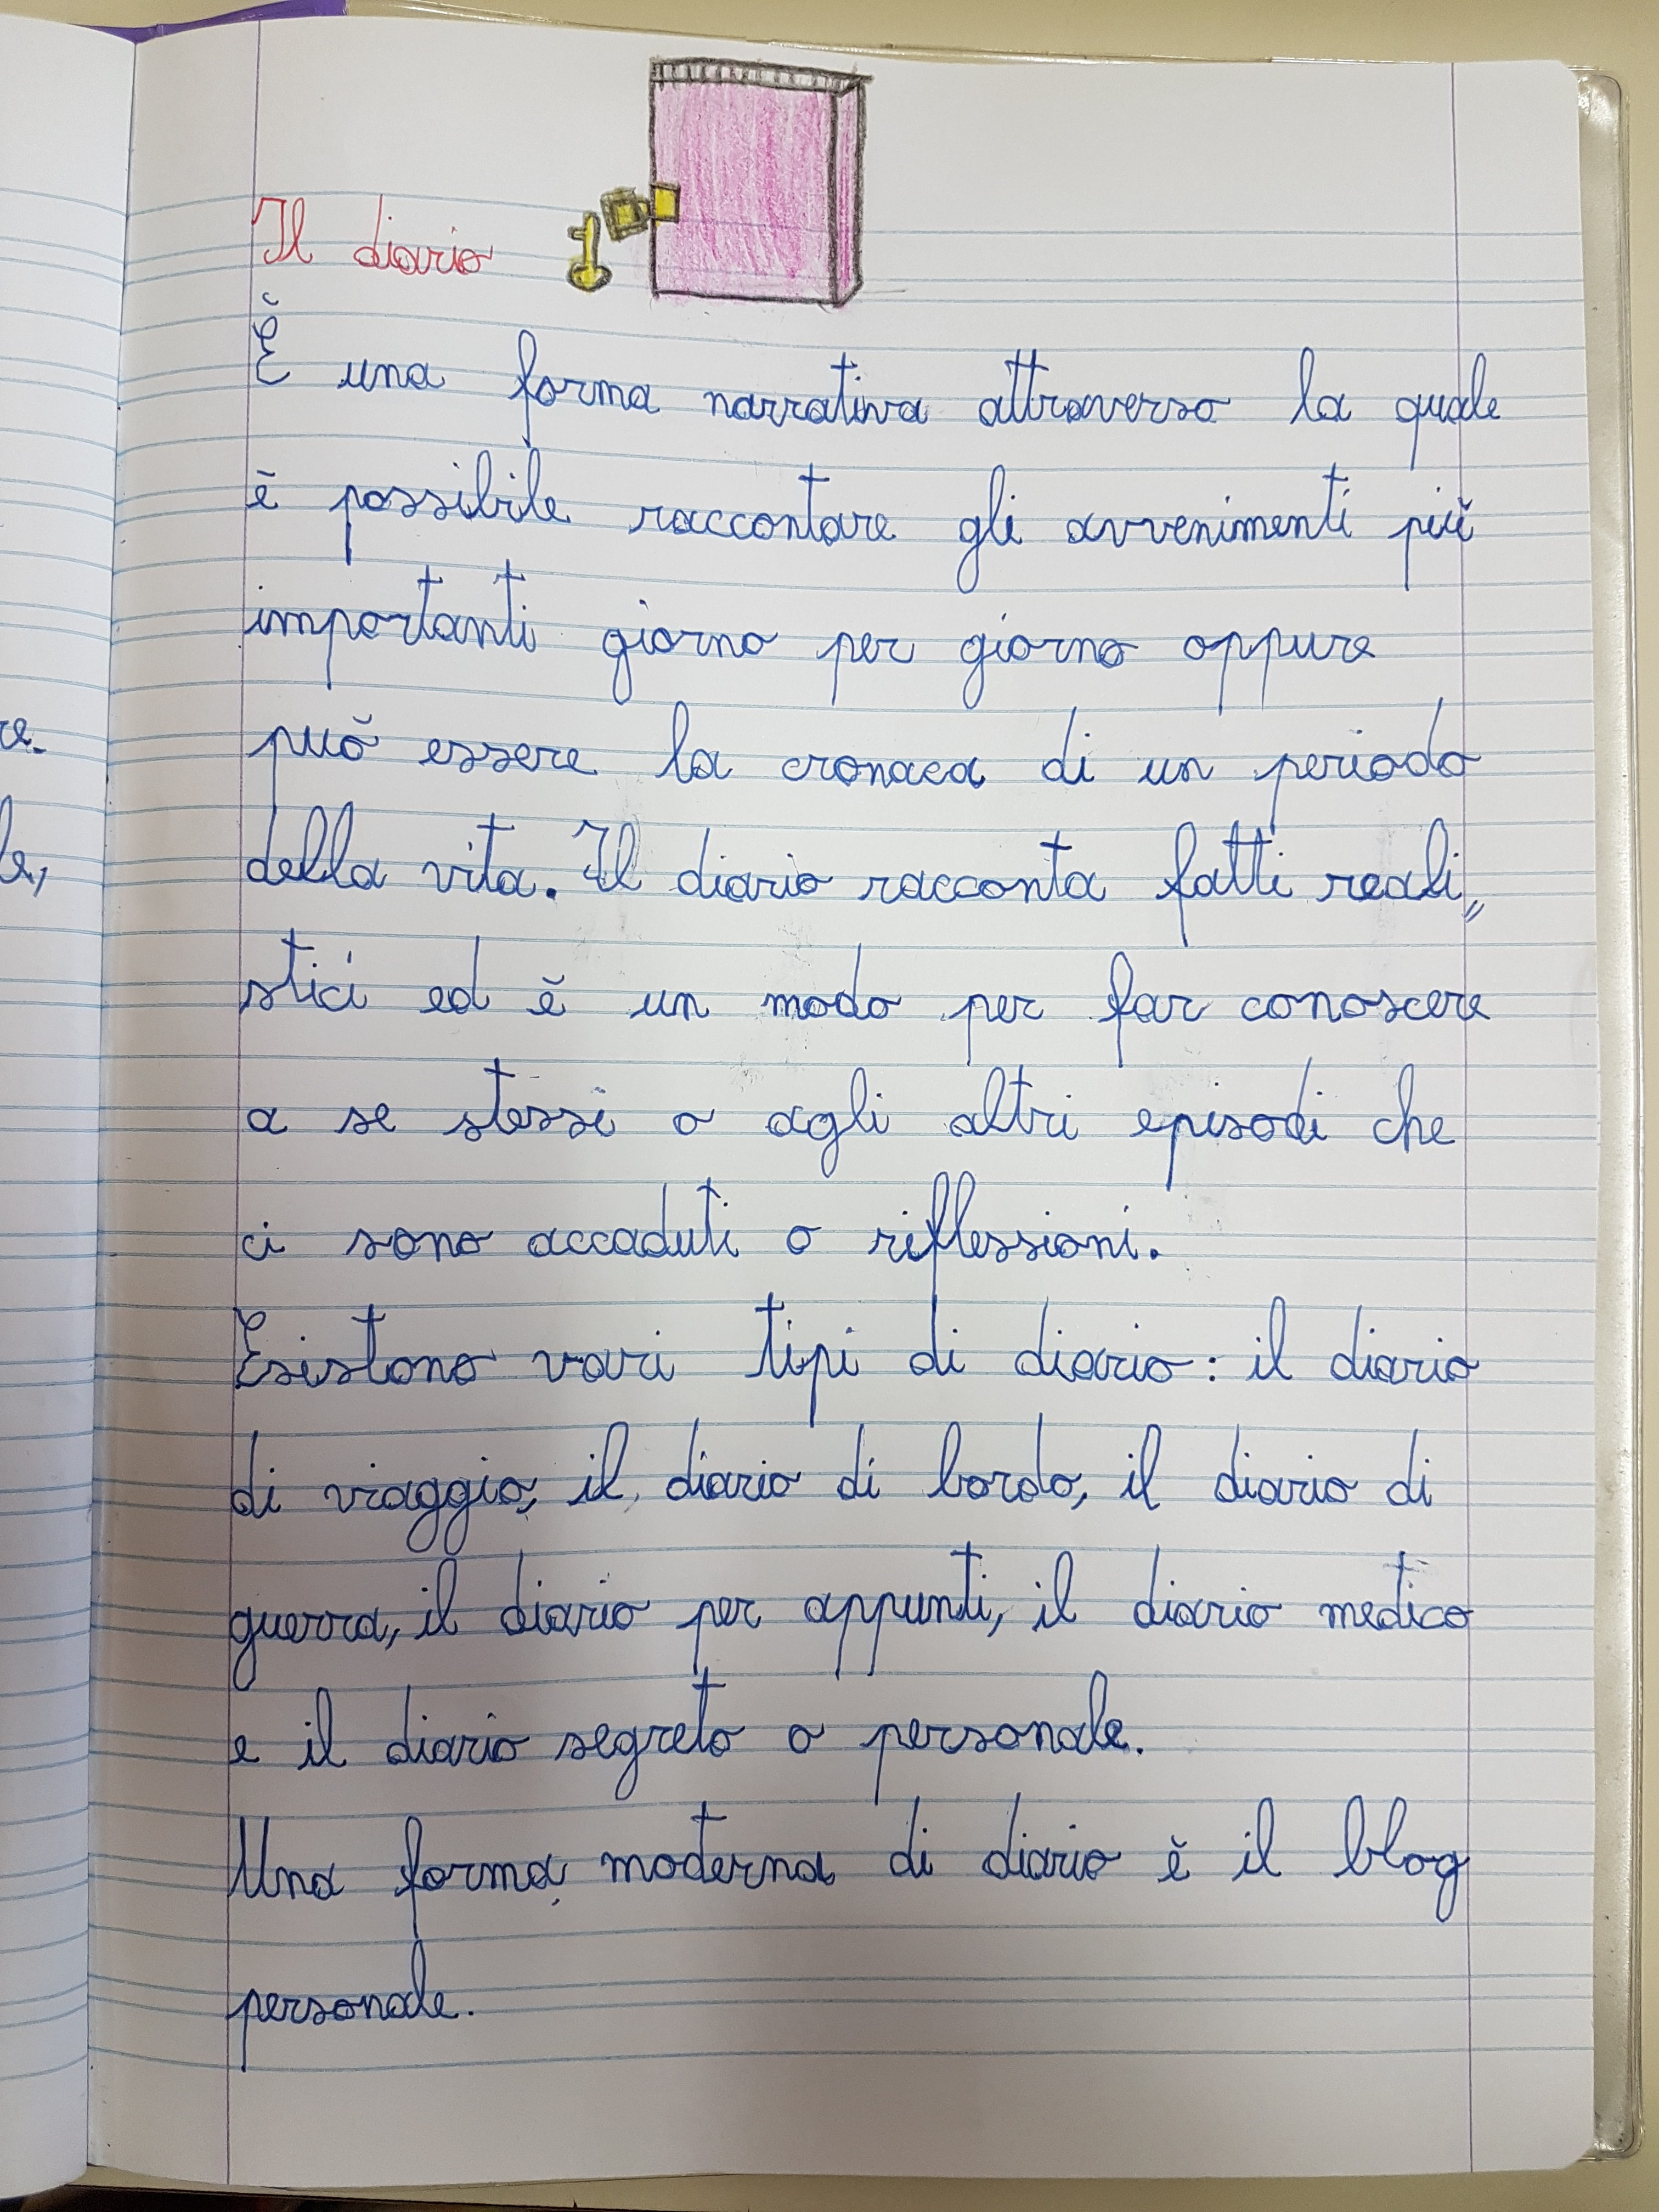 Il diario
È una forma narrativa attraverso la quale
è possibile raccontare gli avvenimenti più
importanti giorno per giorno oppure
può essere la cronaca di un periodo
della vita. Il diario racconta fatti reali„
stici ed è un modo per far conoscere
a se stessi o agli altri episodi che
ci sono accaduti o riflessioni.
Esistono vari tipi di diario: il diario
di viaggio, il diario di bordo, il diario di
guerra, il diario per appunti, il diario medico
e il diario segreto o personale.
Una forma moderna di diario è il blog
personale.